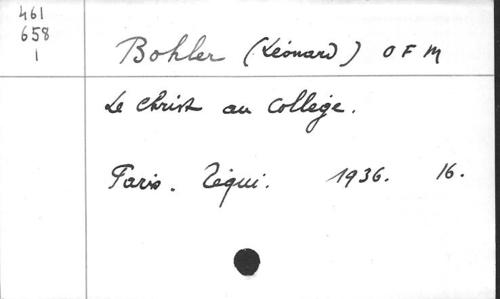 461
658
1
Bohler (Léonard) O F M
Le Christ au Collège.
Paris. Téqui. 1936. 16.